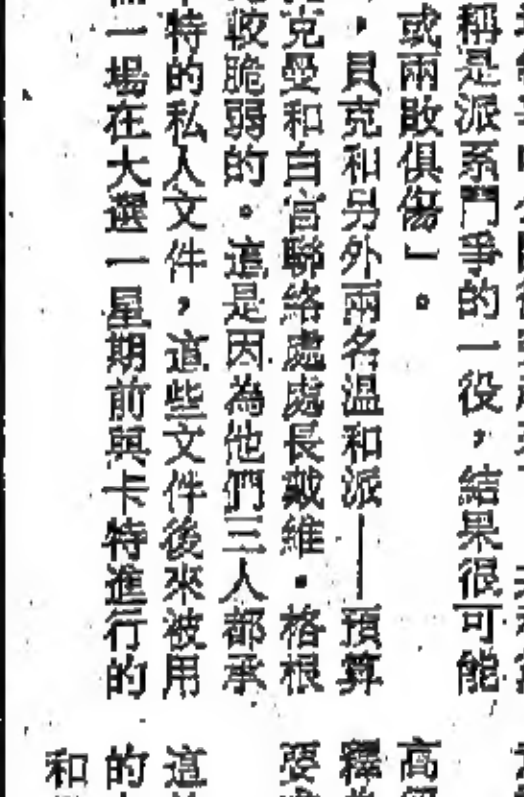 稱是派系鬥爭的一役，結果很可能
或兩敗俱傷」。
，貝克和另外兩名温和派——預算
克曼和白宮聯絡處處長戴維·格根
較脆弱的。這是因為他們三人都承
特的私人文件，這些文件後來被用
一場在大選一星期前與卡特進行的
高
釋
要
這
的
和